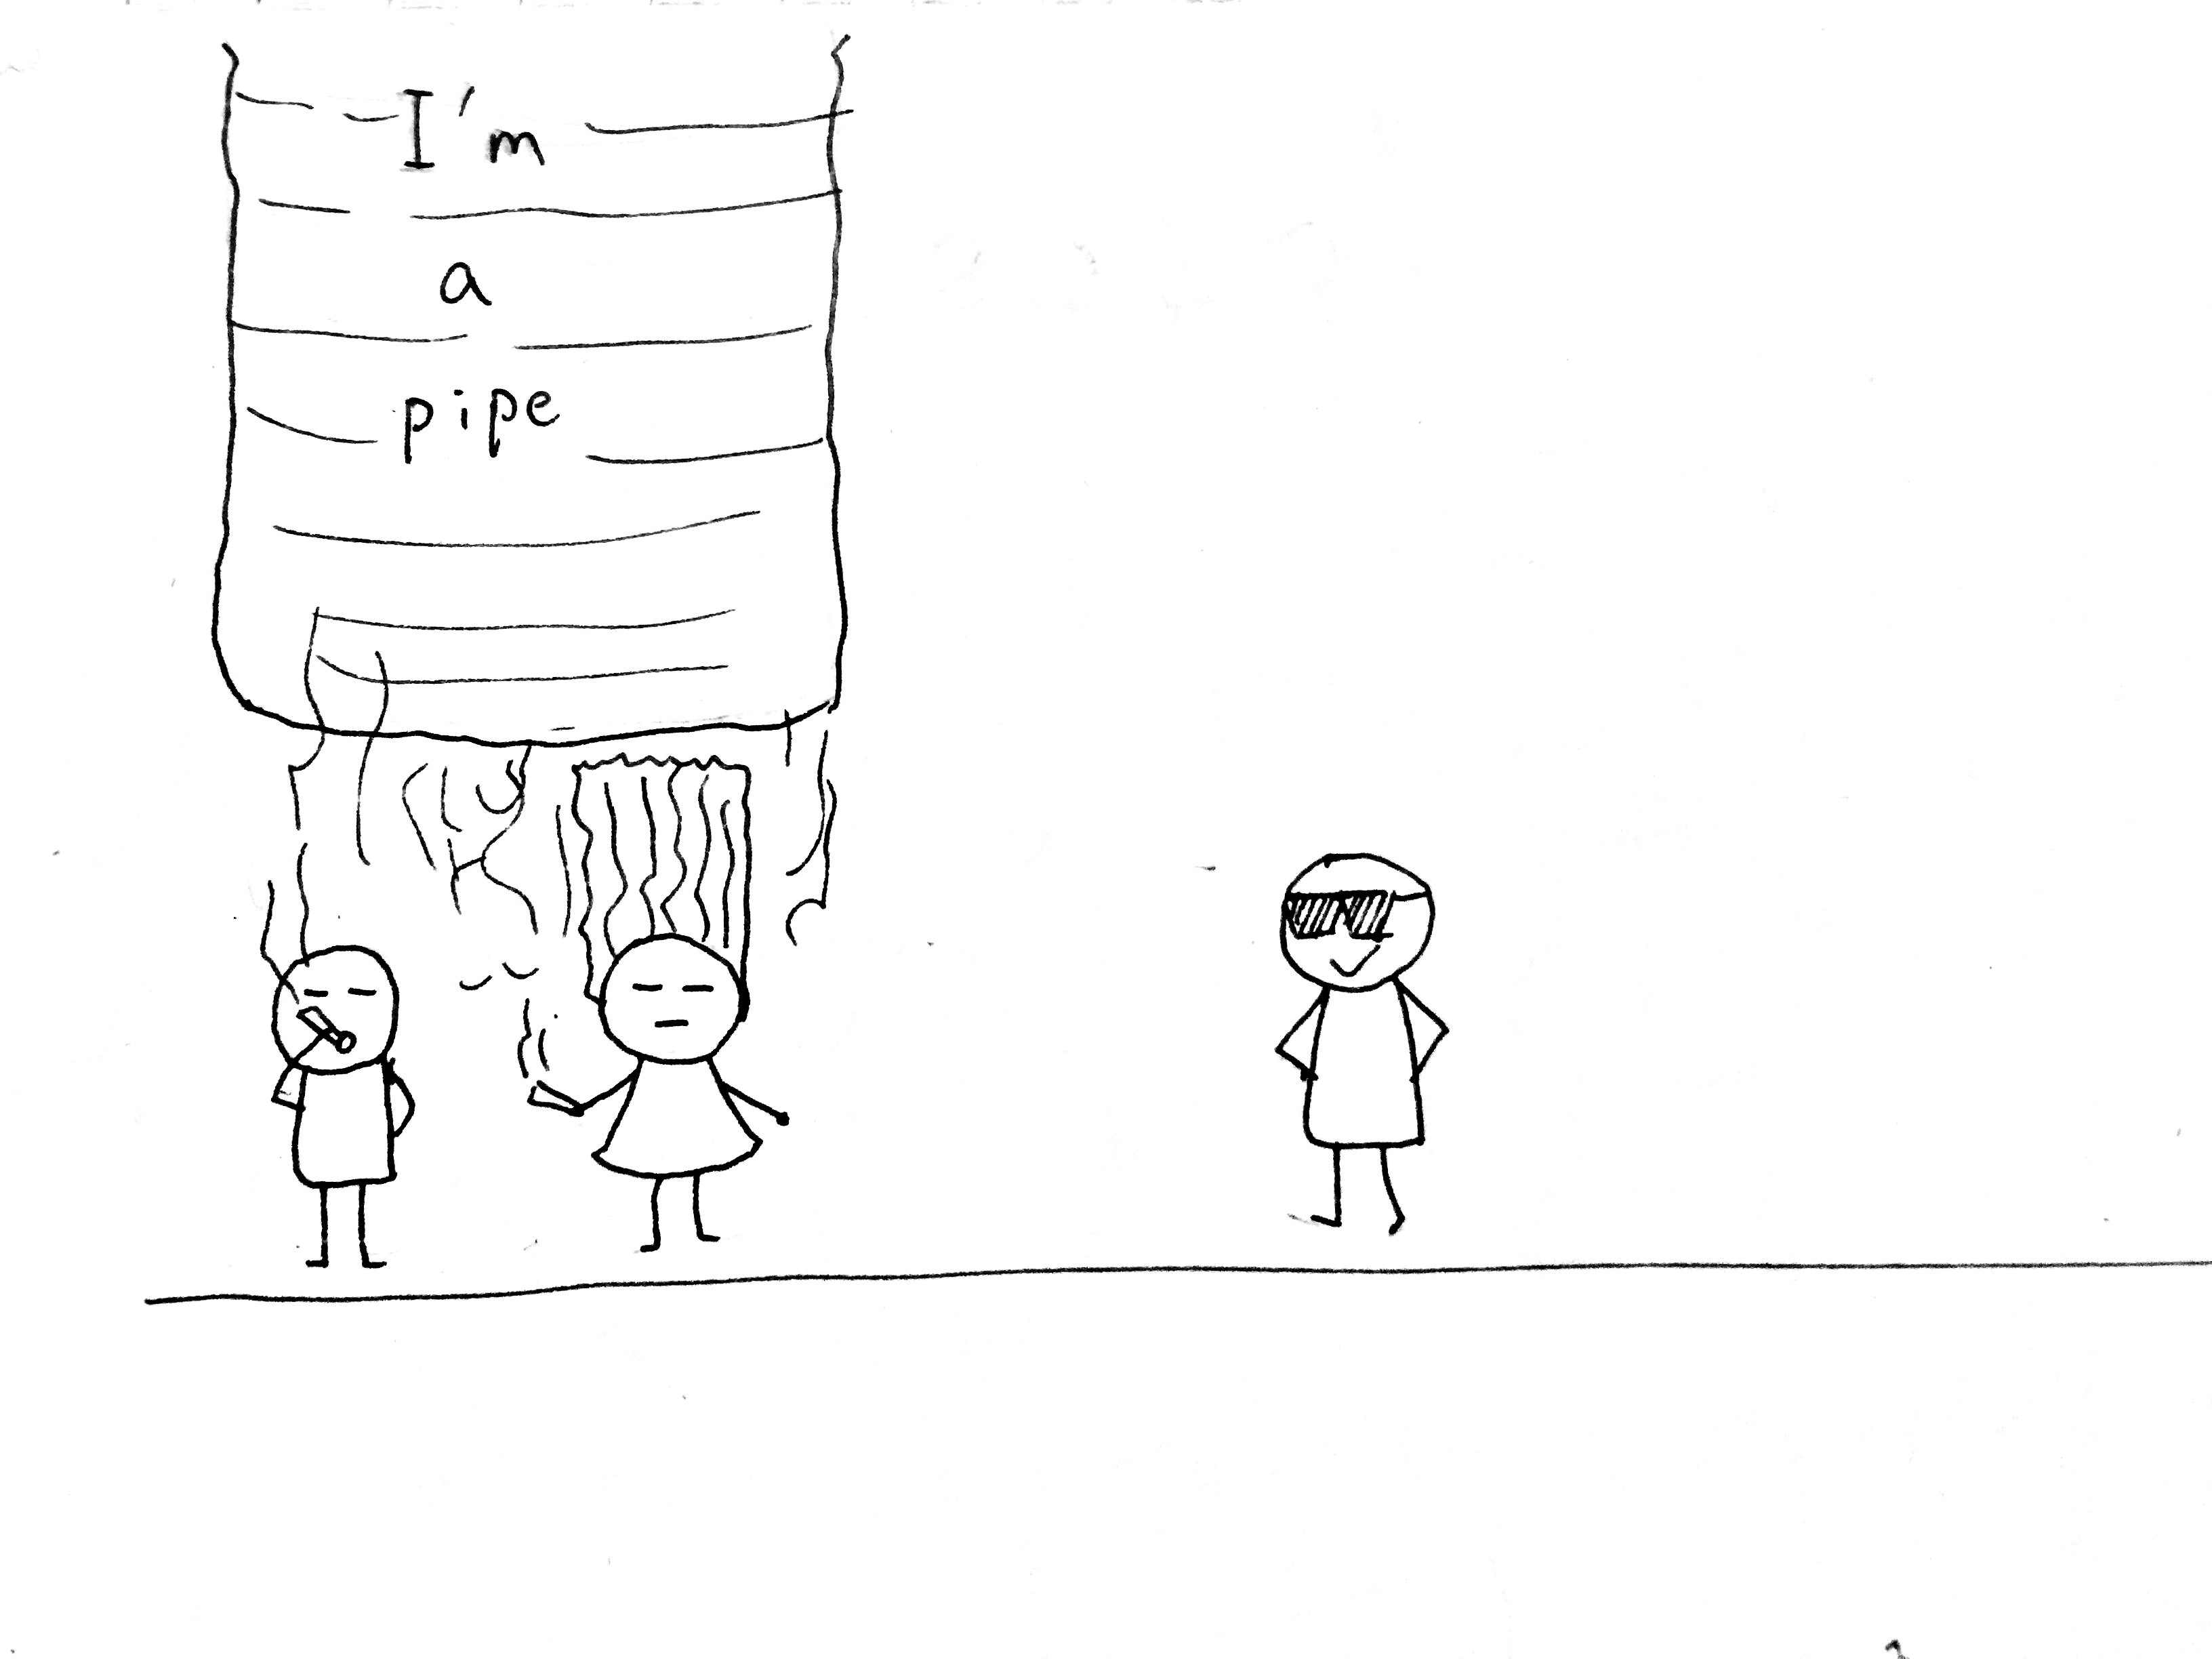 I'm
a
pipe